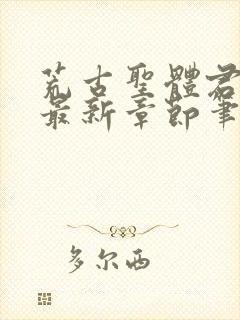 荒古聖體君
最新章節筆
多尔西